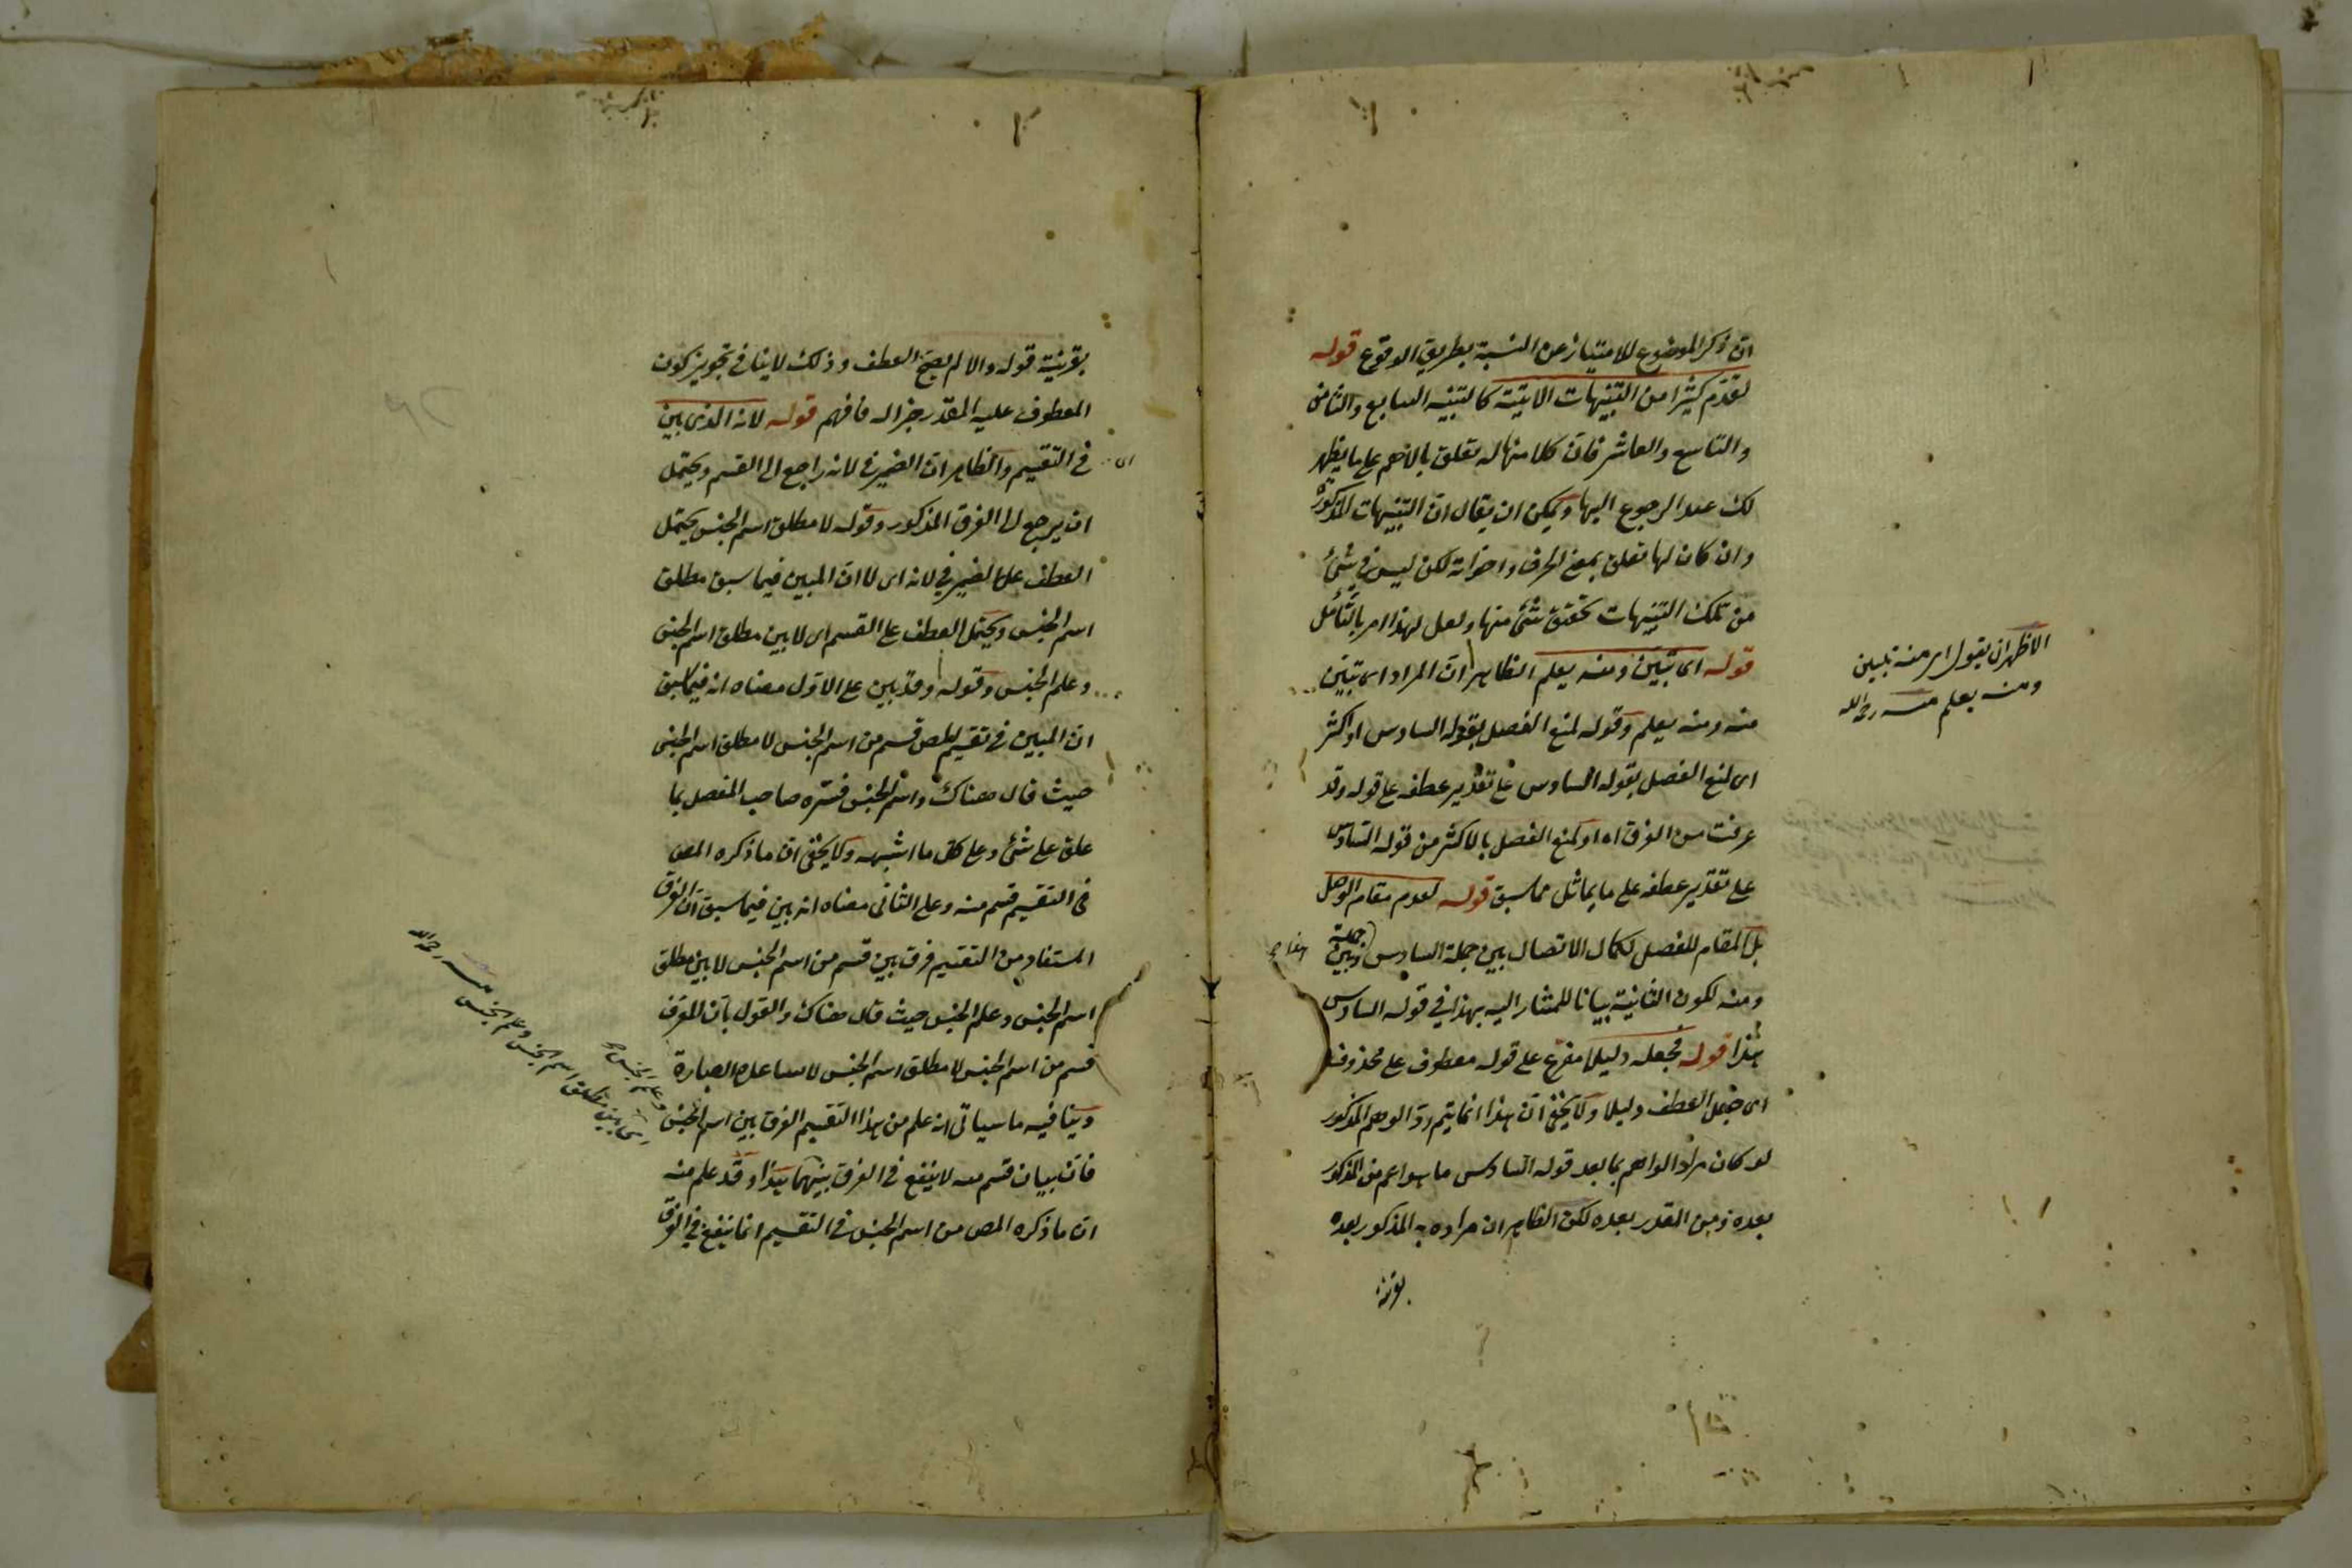 ان ذكر الموضوع للامتياز عن النسبة بطريق الوقوع قوله
لتقدم كثيرا من التنبيهات الاتية كالتنبيه السابع والثامن
والتاسع والعاشر فان كلا منها له تعلق بالاهم على ما يظهر
لك عند الرجوع اليها ويمكن ان يقال ان التنبيهات المذكورة
وان كان لها تعلق بمعنى الحرف واخواته لكن ليس في شئ
من تلك التنبيهات تحقيق شئ منها ولعل لهذا امر بالتأمل
قوله اى تبين ومنه يعلم الظاهر ان المراد اى تبين
منه ومنه يعلم وقوله لمنع الفصل بقوله السادس او اكثر
اى لمنع الفصل بقوله السادس على تقدير عطفه على قوله وقد
عرفت من الفرق اه او لمنع الفصل بالاكثر من قوله السادس
على تقدير عطفه على ما يماثل مما سبق قوله لعدم مقام الوصل
بل المقام للفصل لكمال الاتصال بين جملة السادس وبين جملة
ومنه لكون الثانية بيانا للمشار اليه بهذا في قوله السادس
هذا قوله فجعله دليلا مفرع على قوله معطوف على محذوف
اى فجعل العطف دليلا ولا يخفى ان هذا انما يتم رد الوهم المذكور
لو كان مراد الواهم بما بعد قوله السادس ما هو اعم من المذكور
بعده ومن المقدر بعده لكن الظاهر ان مراده به المذكور بعده
بقرينة
الاظهر ان يقول اى منه تبين
ومنه يعلم منه رحمه الله
بقرينة قوله والا لم يصح العطف وذلك لا ينافي تجويز كون
المعطوف عليه المقدر جزاله فافهم قوله لانه الذى بين
في التقسيم والظاهر ان الضمير في لانه راجع الى القسم ويحتمل
ان يرجع الى الفرق المذكور وقوله لا مطلق اسم الجنس يحتمل
العطف على الضمير في لانه اى لا ان المبين فيما سبق مطلق
اسم الجنس ويحتمل العطف على القسم اى لا بين مطلق اسم الجنس
وعلم الجنس وقوله وقد بين على الاول معناه انه فيما سبق
ان المبين في تقسيم المص قسم من اسم الجنس لا مطلق اسم الجنس
حيث قال هناك واسم الجنس فسره صاحب المفصل بما
علق على شئ وعلى كل ما اشبهه ولا يخفى ان ما ذكره المص
في التقسيم قسم منه وعلى الثاني معناه انه بين فيما سبق ان الفرق
المستفاد من التقسيم فرق بين قسم من اسم الجنس لا بين مطلق
اسم الجنس وعلم الجنس حيث قال هناك والقول بان المعرف
قسم من اسم الجنس لا مطلق اسم الجنس لا يساعده العبارة
وينافيه ما سيأتي انه علم من هذا التقسيم الفرق بين اسم الجنس وعلم الجنس
فان بيان قسم منه لا ينفع في الفرق بينهما هذا وقد علم منه
ان ما ذكره المص من اسم الجنس في التقسيم انما ينفع في الفرق
اى بين مطلق اسم الجنس وعلم الجنس منه رحمه الله